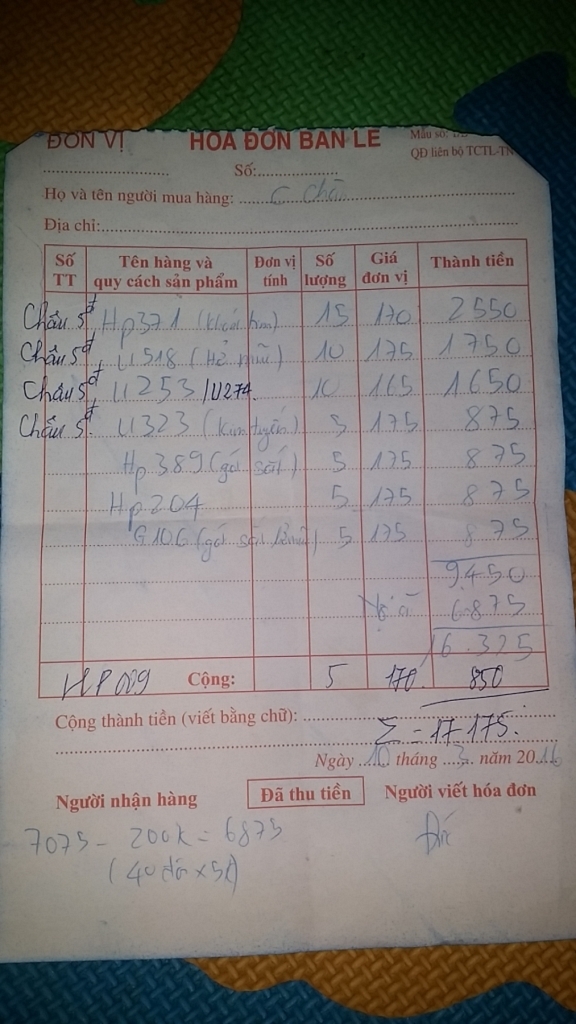 ĐƠN VỊ HÓA ĐƠN BÁN LẺ Mẫu số:
QĐ liên bộ TCTL-TN
Số:
Họ và tên người mua hàng: C Châu
Địa chỉ:
Số TT Tên hàng và quy cách sản phẩm Đơn vị tính Số lượng Giá đơn vị Thành tiền
Châu 5đ, Hp371 15 170 2550
Châu 5đ, U518 10 175 1750
Châu 5đ, U253/U274. 10 165 1650
Châu 5đ. U323 (Kim tuyến) 5 175 875
Hp389 (gót sắt) 5 175 875
Hp204 5 175 875
G106 (gót sắt 5 175 875
9450
Nợ cũ 6875
16.325
HP009 Cộng: 5 170 850
Cộng thành tiền (viết bằng chữ):
Σ = 17.175.
Ngày 10 tháng 3 năm 2016
Người nhận hàng Đã thu tiền Người viết hóa đơn
7075 - 200k = 6875
(40 đôi x 5k)